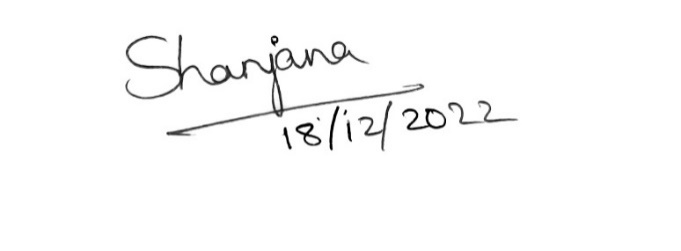 Shanjana
18/12/2022